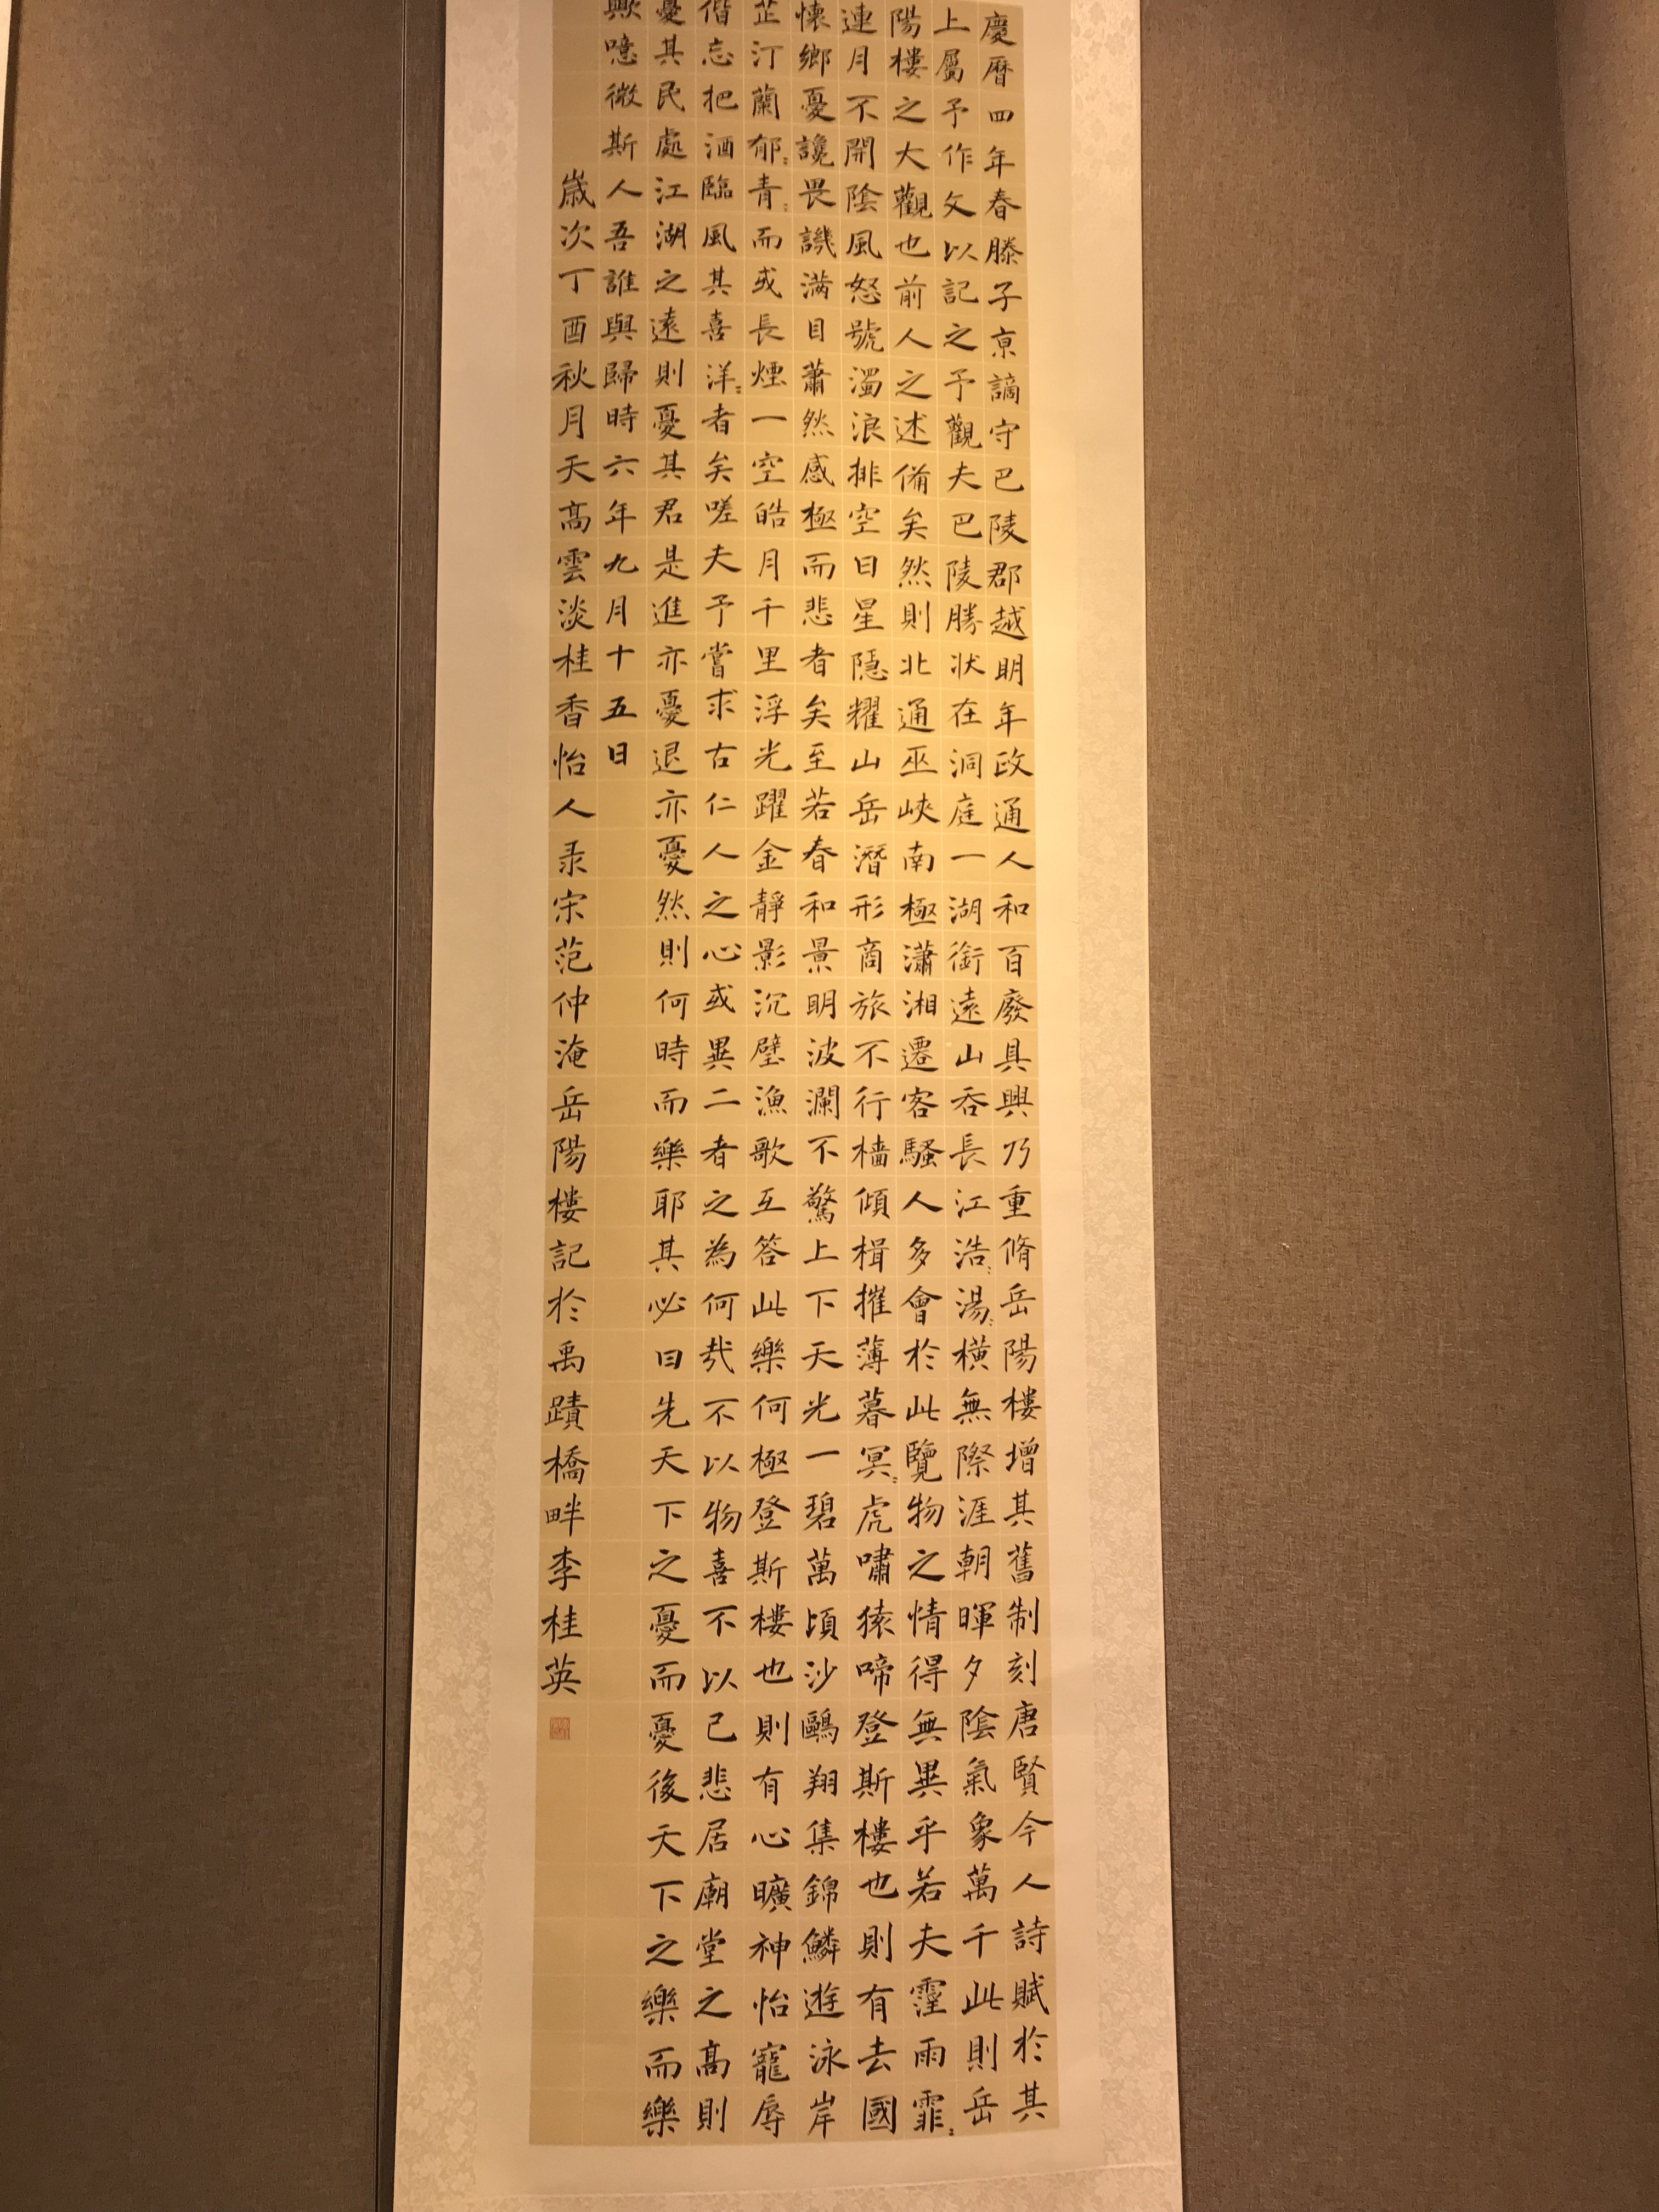 慶曆四年春滕子京謫守巴陵郡越明年政通人和百廢具興乃重脩岳陽樓增其舊制刻唐賢今人詩賦於其
上屬予作文以記之予觀夫巴陵勝狀在洞庭一湖銜遠山吞長江浩〻湯〻橫無際涯朝暉夕陰氣象萬千此則岳
陽樓之大觀也前人之述俻矣然則北通巫峽南極瀟湘遷客騷人多會於此覽物之情得無異乎若夫霪雨霏〻
連月不開陰風怒號濁浪排空日星隱耀山岳潛形商旅不行檣傾楫摧薄暮冥〻虎嘯猿啼登斯樓也則有去國
懷鄉憂讒畏譏滿目蕭然感極而悲者矣至若春和景明波瀾不驚上下天光一碧萬頃沙鷗翔集錦鱗遊泳岸
芷汀蘭郁〻青〻而或長煙一空皓月千里浮光躍金靜影沉璧漁歌互答此樂何極登斯樓也則有心曠神怡寵辱
偕忘把酒臨風其喜洋〻者矣嗟夫予嘗求古仁人之心或異二者之為何哉不以物喜不以己悲居廟堂之高則
憂其民處江湖之遠則憂其君是進亦憂退亦憂然則何時而樂耶其必曰先天下之憂而憂後天下之樂而樂
歟噫微斯人吾誰與歸時六年九月十五日
歲次丁酉秋月天高雲淡桂香怡人录宋范仲淹岳陽樓記於禹蹟橋畔李桂英